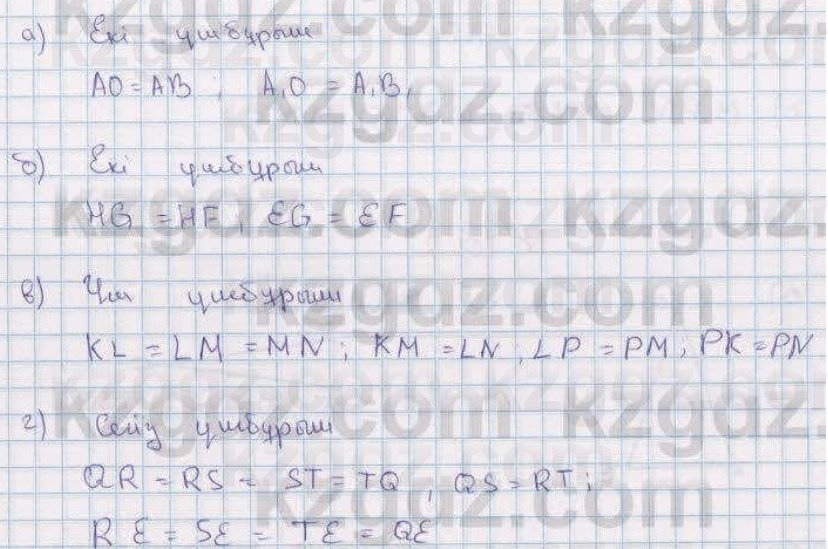 а) Екі үшбұрыш
AO = AB ; A₁O = A₁B₁
б) Екі үшбұрыш
HG = HF ; EG = EF
в) Үш үшбұрыш
KL = LM = MN ; KM = LN , LP = PM ; PK = PN
г) Сегіз үшбұрыш
QR = RS = ST = TQ , QS = RT ;
RE = SE = TE = QE
kzgdz.com